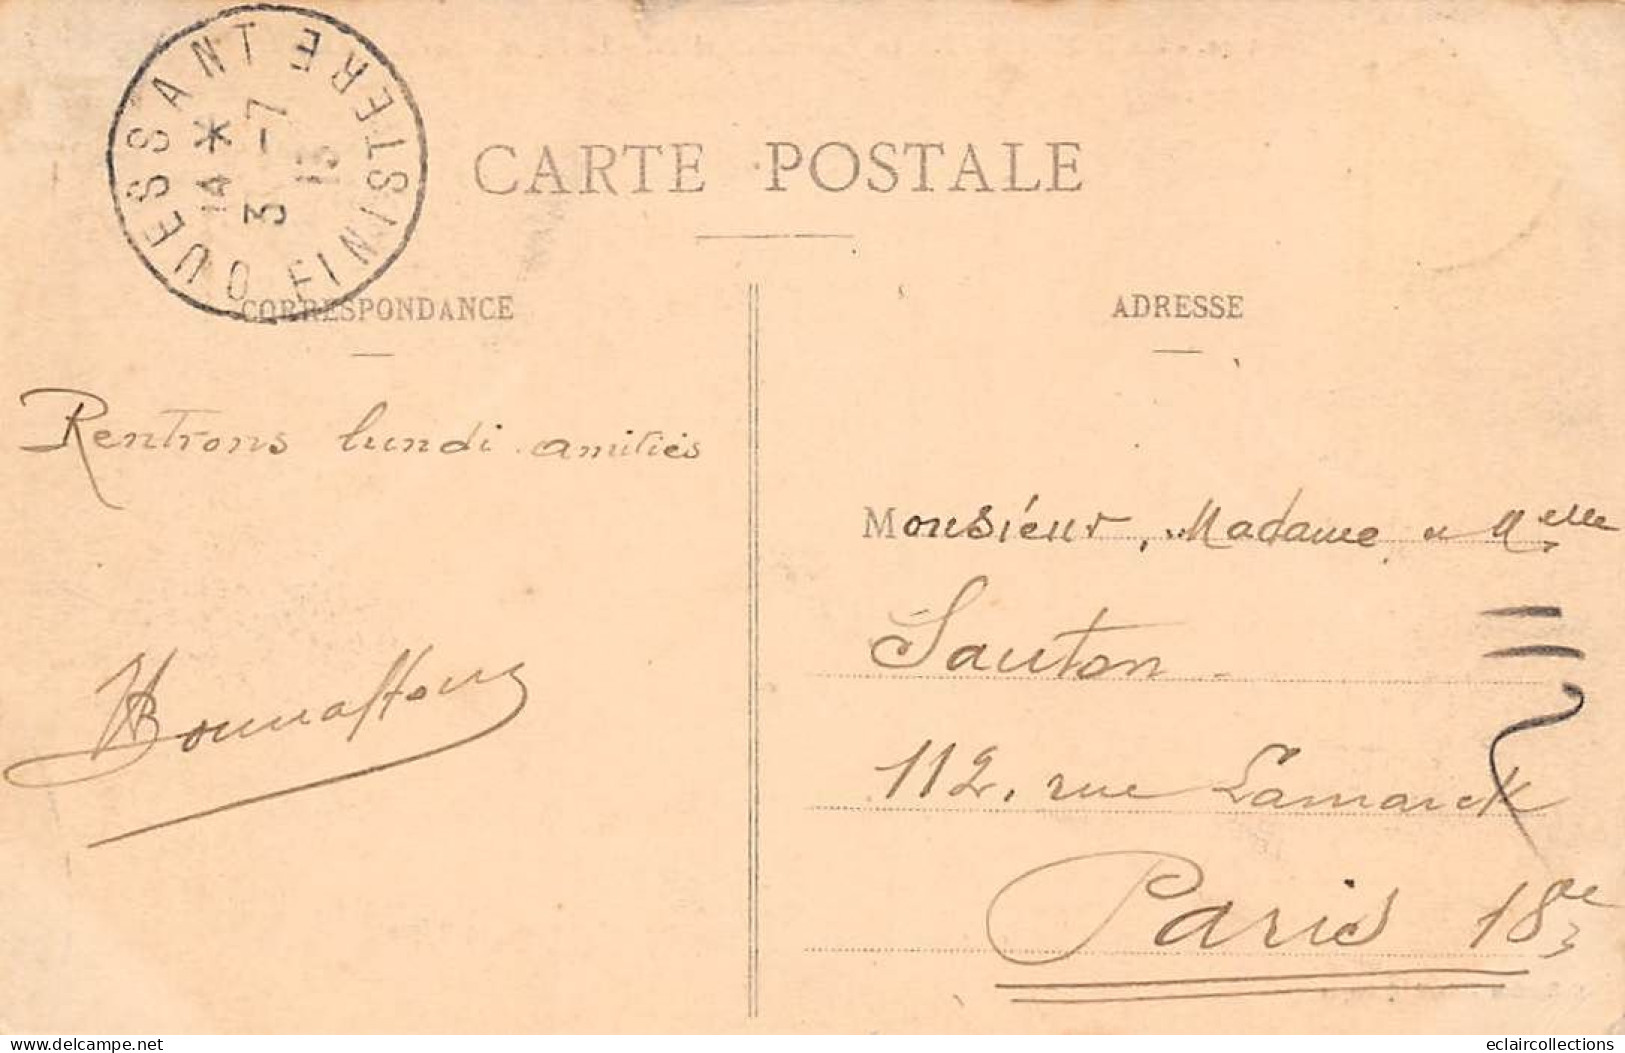 OUESSANT FINISTERE
14 *
3 -7
13
CARTE POSTALE
CORRESPONDANCE
ADRESSE
Rentrons lundi amitiés
Monsieur, Madame Melle
Sauton
112, rue Lamarck
Paris 18e
delcampe.net
eclaircollections